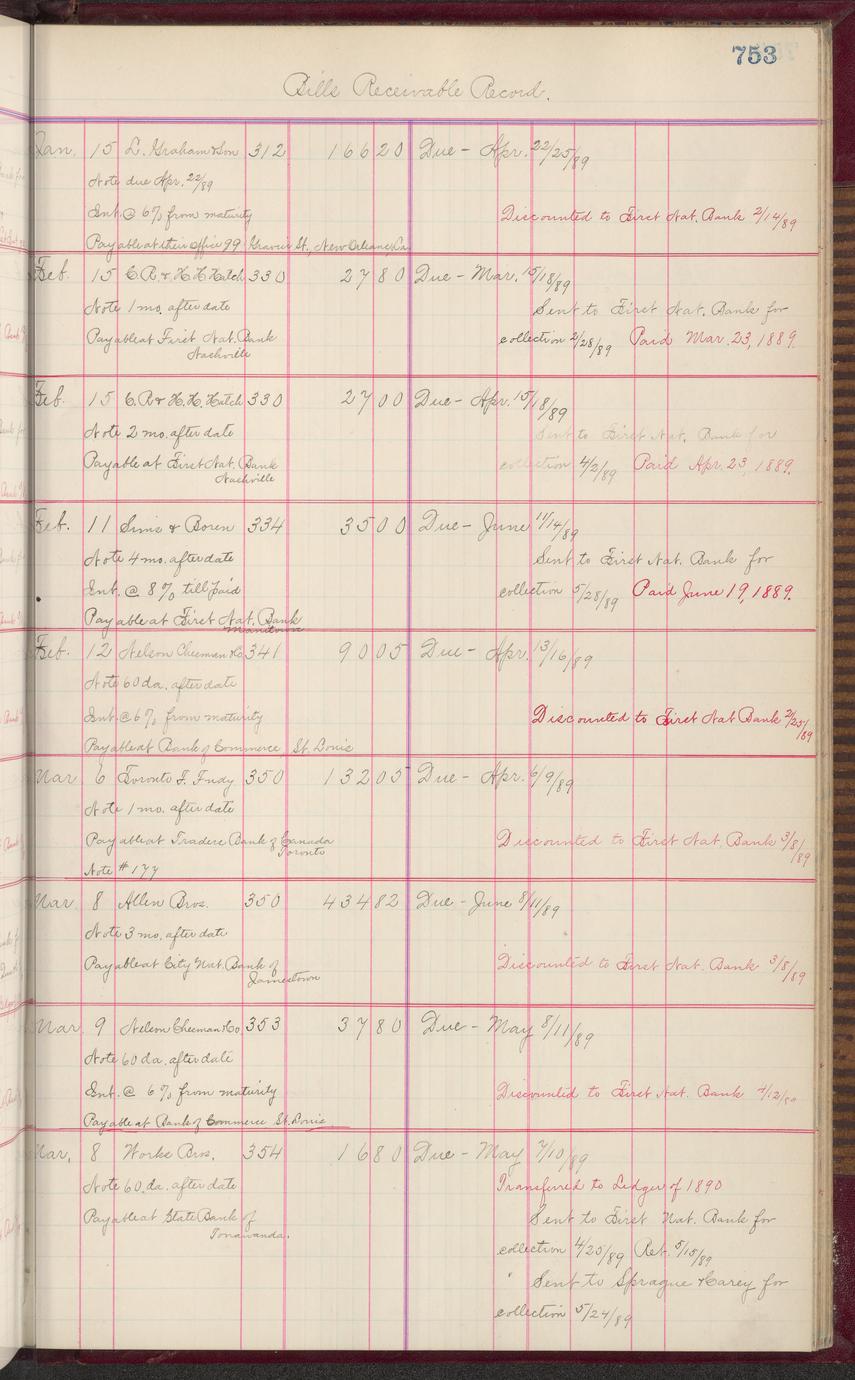 753
Bills Receivable Record.
Jan. 15 L. Graham & Son 312 166 20 Due - Apr. 22/25/89
Note due Apr. 22/89
Int. @ 6% from maturity Discounted to First Nat. Bank 2/14/89
Payable at their office 99 Gravier St., New Orleans, La.
Feb. 15 C. R. & H. H. Hatch 330 27 80 Due - Mar. 15/18/89
Note 1 mo. after date Sent to First Nat. Bank for
Payable at First Nat. Bank collection 2/28/89 Paid Mar. 23, 1889.
Nashville
Feb. 15 C. R. & H. H. Hatch 330 27 00 Due - Apr. 15/18/89
Note 2 mo. after date Sent to First Nat. Bank for
Payable at First Nat. Bank collection 4/2/89 Paid Apr. 23, 1889.
Nashville
Feb. 11 Sims & Boren 334 35 00 Due - June 11/14/89
Note 4 mo. after date Sent to First Nat. Bank for
Int. @ 8% till paid collection 5/28/89 Paid June 19, 1889.
Payable at First Nat. Bank
Feb. 12 Nelson Cheeman & Co. 341 90 05 Due - Apr. 13/16/89
Note 60 da. after date
Int. @ 6% from maturity Discounted to First Nat Bank 2/25/89
Payable at Bank of Commerce St. Louis
Mar 6 Toronto T. Fndy 350 132 05 Due - Apr. 6/9/89
Note 1 mo. after date
Payable at Traders Bank of Canada Discounted to First Nat. Bank 3/8/89
Toronto
Note #177
Mar. 8 Allen Bros. 350 434 82 Due - June 8/11/89
Note 3 mo. after date
Payable at City Nat. Bank of Discounted to First Nat. Bank 3/8/89
Jamestown
Mar. 9 Nelson Cheeman & Co. 353 37 80 Due - May 8/11/89
Note 60 da. after date
Int. @ 6% from maturity Discounted to First Nat. Bank 4/12/89
Payable at Bank of Commerce St. Louis
Mar. 8 Works Bros. 354 16 80 Due - May 7/10/89
Note 60 da. after date Transferred to Ledger of 1890
Payable at State Bank of Sent to First Nat. Bank for
Tonawanda. collection 4/25/89 Ret. 5/15/89
" Sent to Sprague & Carey for
collection 5/24/89